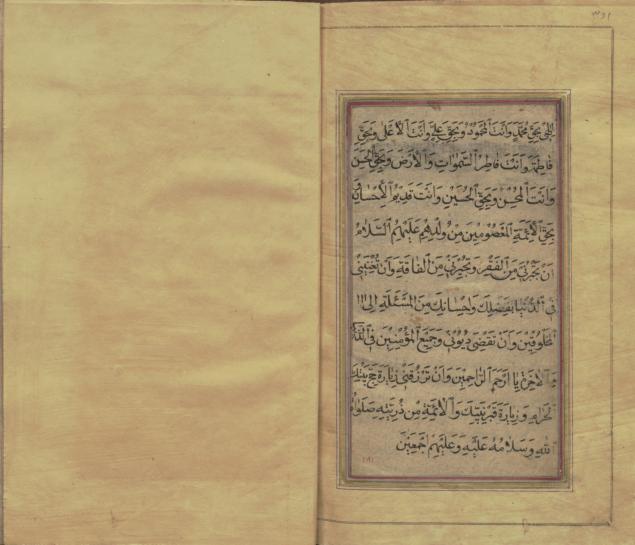 ٣٤١
إلٰهي بِحَقِّ مُحَمَّدٍ وَأَنْتَ الْمَحْمُودُ وَبِحَقِّ عَلِيٍّ وَأَنْتَ الْأَعْلٰى وَبِحَقِّ
فَاطِمَةَ وَأَنْتَ فَاطِرُ السَّمٰوَاتِ وَالْأَرْضِ وَبِحَقِّ الْحَسَنِ
وَأَنْتَ الْمُحْسِنُ وَبِحَقِّ الْحُسَيْنِ وَأَنْتَ قَدِيمُ الْإِحْسَانِ وَ
بِحَقِّ الْأَئِمَّةِ الْمَعْصُومِينَ مِنْ وُلْدِهِمْ عَلَيْهِمُ السَّلَامُ
أَنْ تُجِيرَنِي مِنَ الْفَقْرِ وَتُجِيرَنِي مِنَ الْفَاقَةِ وَأَنْ تُغْنِيَنِي
فِي الدُّنْيَا بِفَضْلِكَ وَإِحْسَانِكَ مِنَ الْمَسْئَلَةِ إِلَى
الْمَخْلُوقِينَ وَأَنْ تَقْضِيَ دُيُونِي وَجَمِيعِ الْمُؤْمِنِينَ فِي الدُّنْيَا
وَالْآخِرَةِ يَا أَرْحَمَ الرَّاحِمِينَ وَأَنْ تَرْزُقَنِي زِيَارَةَ حَجِّ بَيْتِكَ
الْحَرَامِ وَزِيَارَةَ قَبْرِ نَبِيِّكَ وَالْأَئِمَّةِ مِنْ ذُرِّيَّتِهِ صَلَوَاتُ
اللهِ وَسَلَامُهُ عَلَيْهِ وَعَلَيْهِمْ أَجْمَعِينَ